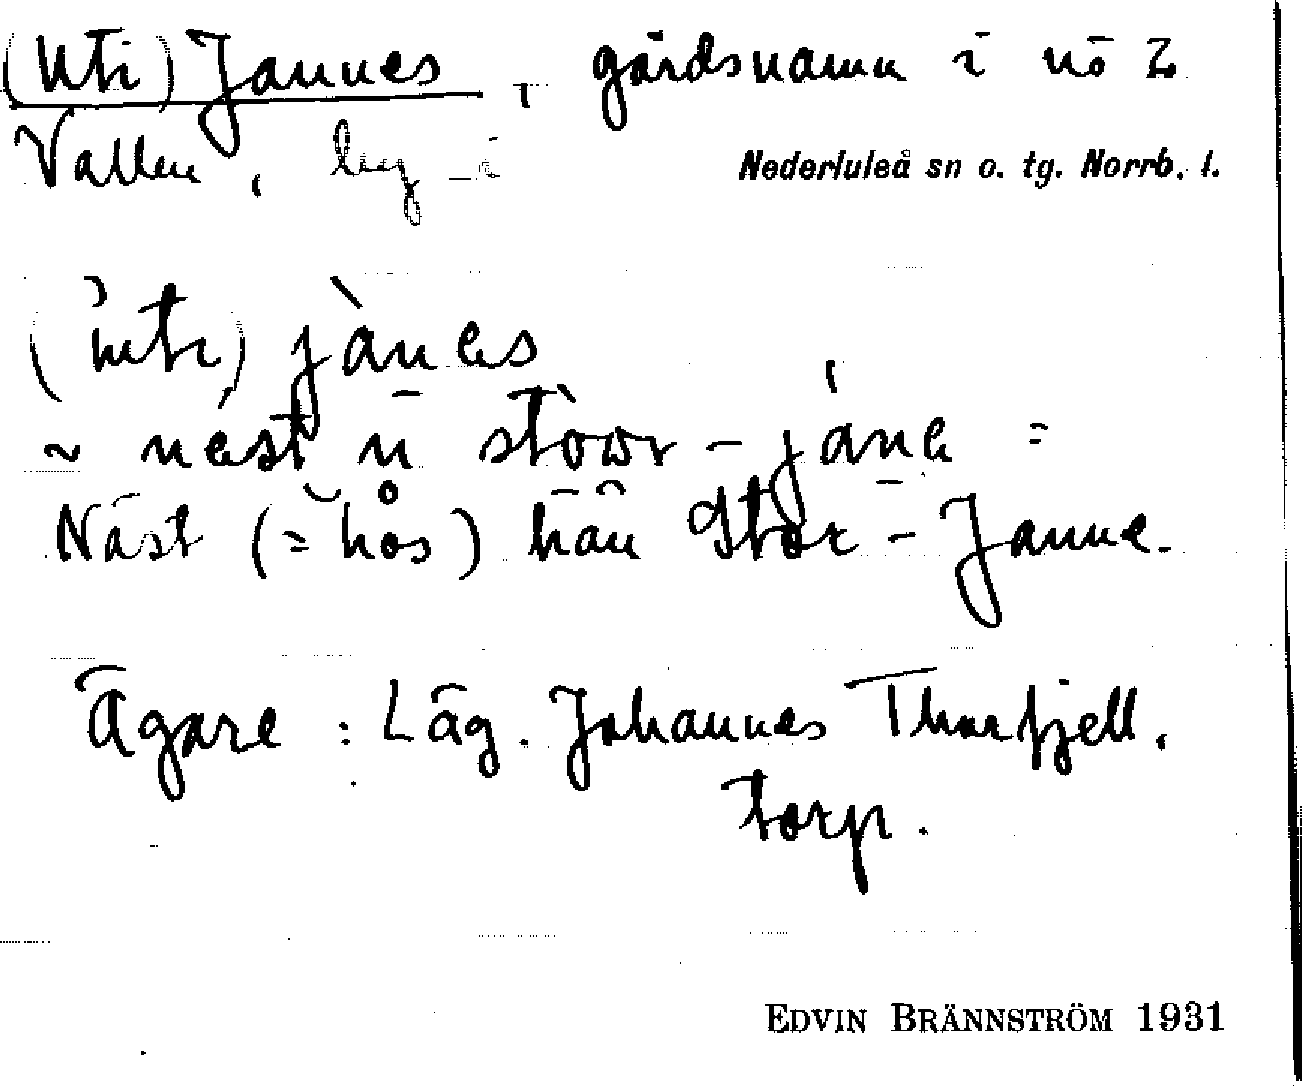 (Uti) Jannes, gårdsnamn i nö 2
Vallen, by i Nederluleå sn o. tg. Norrb. l.
(ìnti) jànes
~ nést ń stòwr-jáne =
Näst (= hos) hän Stor-Janne.
Ägare: Läg. Johannes Thorfjell.
torp.
EDVIN BRÄNNSTRÖM 1931